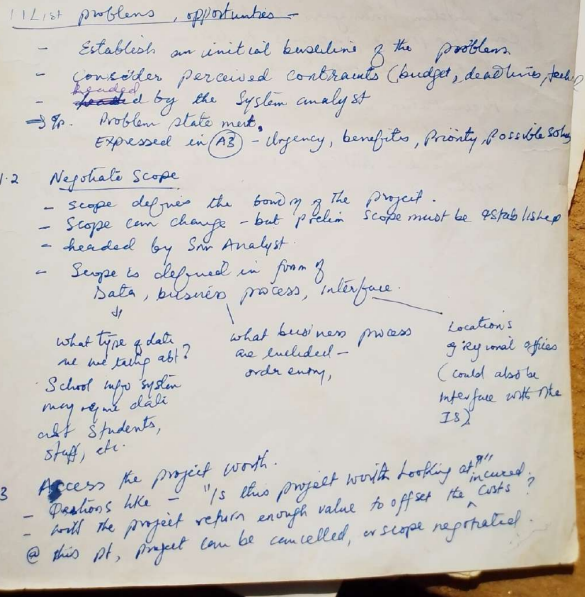 1.1 List problems, opportunities -
- Establish an initial baseline of the problem.
- Consider perceived contraints (budget, deadlines,
- headed by the System analyst
→ %. Problem state ment.
Expressed in A3 - Urgency, benefits, Priority, Possible soln
1.2 Negotiate Scope
- scope defines the boundry of the project.
- Scope can change - but prelim scope must be established
- headed by Snr Analyst.
- Scope is defined in form of
Data, business process, interface.
what type of data
are we talking abt?
School info system
may require data
abt Students,
staff, etc.
what business process
are included -
order entry,
Locations
of regional offices
(could also be
interface with othe
IS)
3 Access the project worth.
- Questions like - "Is this project worth looking at?"
- will the project return enough value to offset the incured costs?
@ this pt, project can be cancelled, or scope negotiated.